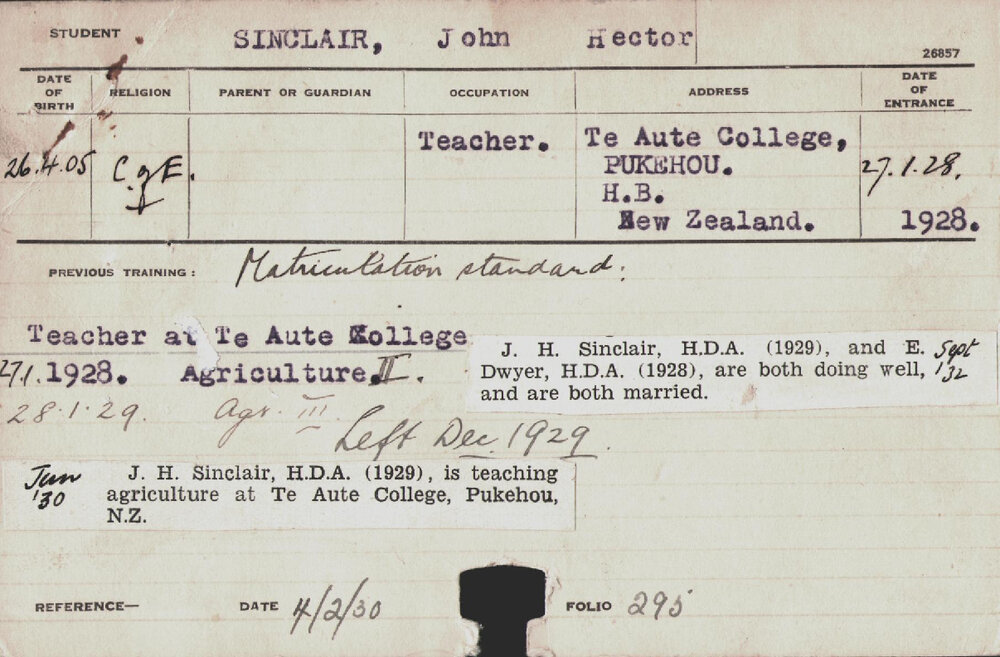 STUDENT SINCLAIR, John Hector
26857
DATE OF BIRTH RELIGION PARENT OR GUARDIAN OCCUPATION ADDRESS DATE OF ENTRANCE
26.4.05 C of E. Teacher. Te Aute College,
PUKEHOU. 27.1.28.
H.B.
New Zealand. 1928.
PREVIOUS TRAINING: Matriculation standard.
Teacher at Te Aute College
27.1.1928. Agriculture. II.
J. H. Sinclair, H.D.A. (1929), and E. Sept
Dwyer, H.D.A. (1928), are both doing well, '32
and are both married.
28.1.29. Agr. III
Left Dec. 1929.
Jan J. H. Sinclair, H.D.A. (1929), is teaching
'30 agriculture at Te Aute College, Pukehou,
N.Z.
REFERENCE— DATE 4/2/30 FOLIO 295